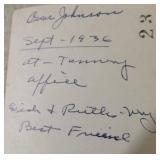 Oscar Johnson
Sept - 1936
at - Tannery
office
Dick & Ruth - My
Best Friend
23